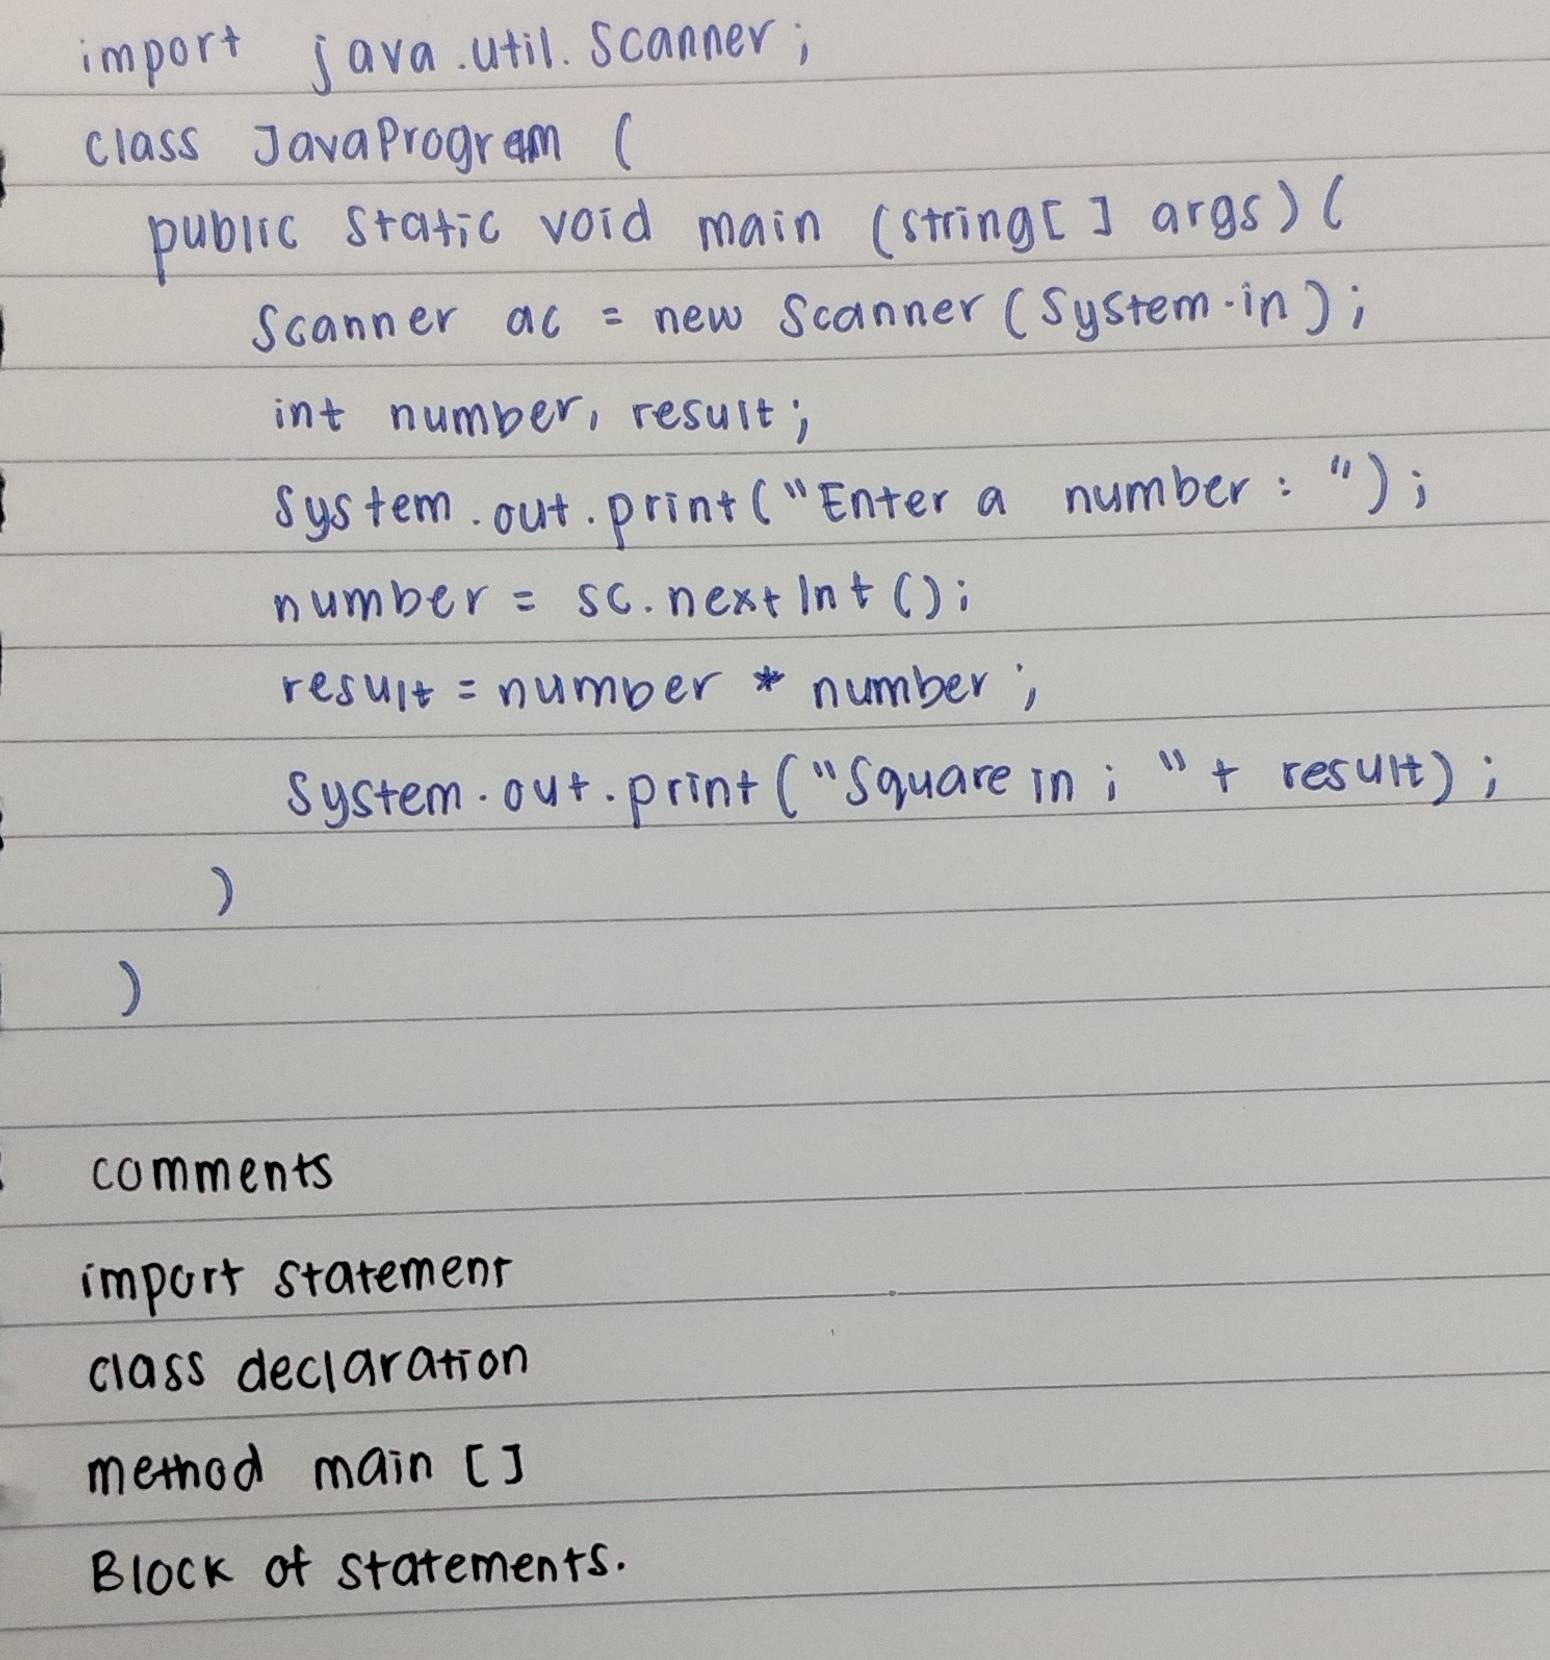 import java.util.Scanner;
class JavaProgram (
public static void main (string[ ] args) (
Scanner ac = new Scanner (System.in);
int number, result;
System.out.print("Enter a number: ");
number = sc.nextInt ();
result = number * number;
System.out.print ("Square in ; " + result);
)
)
comments
import statement
class declaration
method main []
Block of statements.